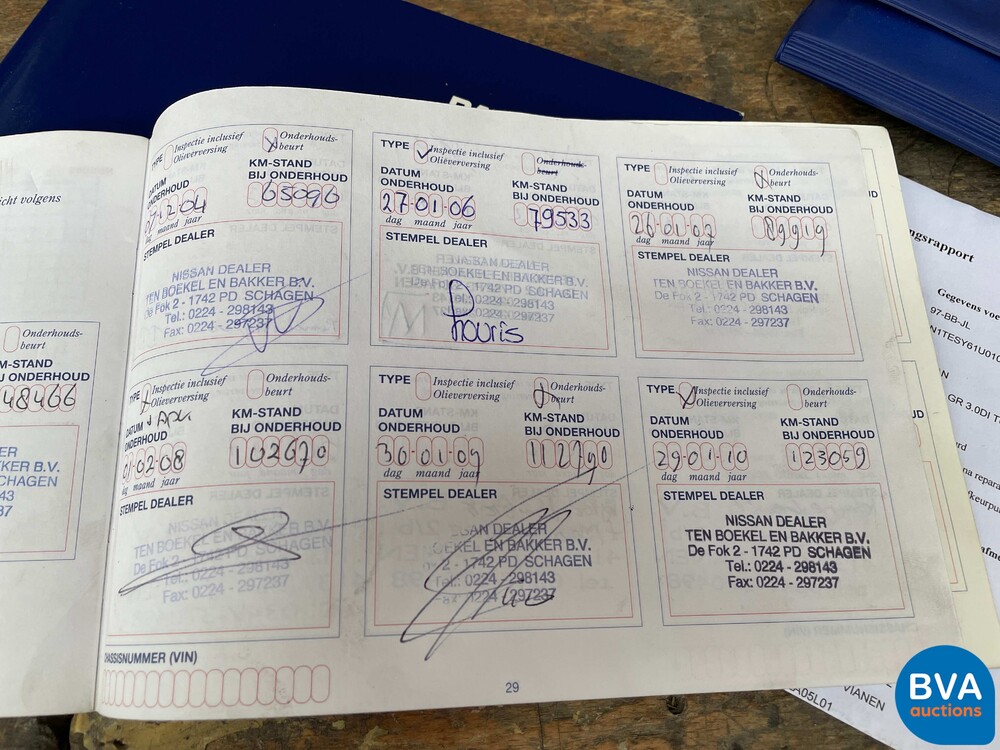 icht volgens
KM-STAND
BIJ ONDERHOUD
48466
TYPE Inspectie inclusief Olieverversing
Onderhouds-beurt
DATUM ONDERHOUD
KM-STAND BIJ ONDERHOUD
07-12-04
65096
dag maand jaar
STEMPEL DEALER
NISSAN DEALER
TEN BOEKEL EN BAKKER B.V.
De Fok 2 - 1742 PD SCHAGEN
Tel.: 0224 - 298143
Fax: 0224 - 297237
TYPE Inspectie inclusief Olieverversing
Onderhouds-beurt
DATUM ONDERHOUD
KM-STAND BIJ ONDERHOUD
27-01-06
79533
dag maand jaar
STEMPEL DEALER
NISSAN DEALER
TEN BOEKEL EN BAKKER B.V.
De Fok 2 - 1742 PD SCHAGEN
Tel.: 0224 - 298143
TYPE Inspectie inclusief Olieverversing
Onderhouds-beurt
DATUM ONDERHOUD
KM-STAND BIJ ONDERHOUD
26-01-07
89919
dag maand jaar
STEMPEL DEALER
NISSAN DEALER
TEN BOEKEL EN BAKKER B.V.
De Fok 2 - 1742 PD SCHAGEN
Tel.: 0224 - 298143
Fax: 0224 - 297237
TYPE Inspectie inclusief Olieverversing
Onderhouds-beurt
DATUM ONDERHOUD
KM-STAND BIJ ONDERHOUD
01-02-08
102670
dag maand jaar
STEMPEL DEALER
NISSAN DEALER
TEN BOEKEL EN BAKKER B.V.
De Fok 2 - 1742 PD SCHAGEN
Tel.: 0224 - 298143
Fax: 0224 - 297237
TYPE Inspectie inclusief Olieverversing
Onderhouds-beurt
DATUM ONDERHOUD
KM-STAND BIJ ONDERHOUD
30-01-09
112790
dag maand jaar
STEMPEL DEALER
SSAN DEALER
OEKEL EN BAKKER B.V.
2 - 1742 PD SCHAGEN
0224 - 298143
0224 - 297237
TYPE Inspectie inclusief Olieverversing
Onderhouds-beurt
DATUM ONDERHOUD
KM-STAND BIJ ONDERHOUD
29-01-10
123059
dag maand jaar
STEMPEL DEALER
NISSAN DEALER
TEN BOEKEL EN BAKKER B.V.
De Fok 2 - 1742 PD SCHAGEN
Tel.: 0224 - 298143
Fax: 0224 - 297237
CHASSISNUMMER (VIN)
29
ngsrapport
Gegevens voe
97-BB-JL
N1TESY61U010
GR 3.0DI T
na repara
keurpu
afme
A05L01
VIANEN
BVA
auctions